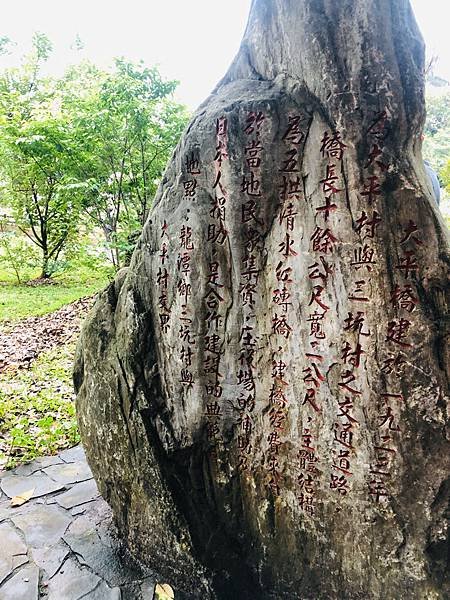 大平橋建於一九二三年
為大平村與三坑村之交通道路
橋長十餘公尺寬二公尺,主體結構
為五拱清水紅磚橋,建橋經費
於當地民眾集資,庄役場的補助
日本人捐助,是合作建設的典範
地點:龍潭鄉三坑村與
大平村交界